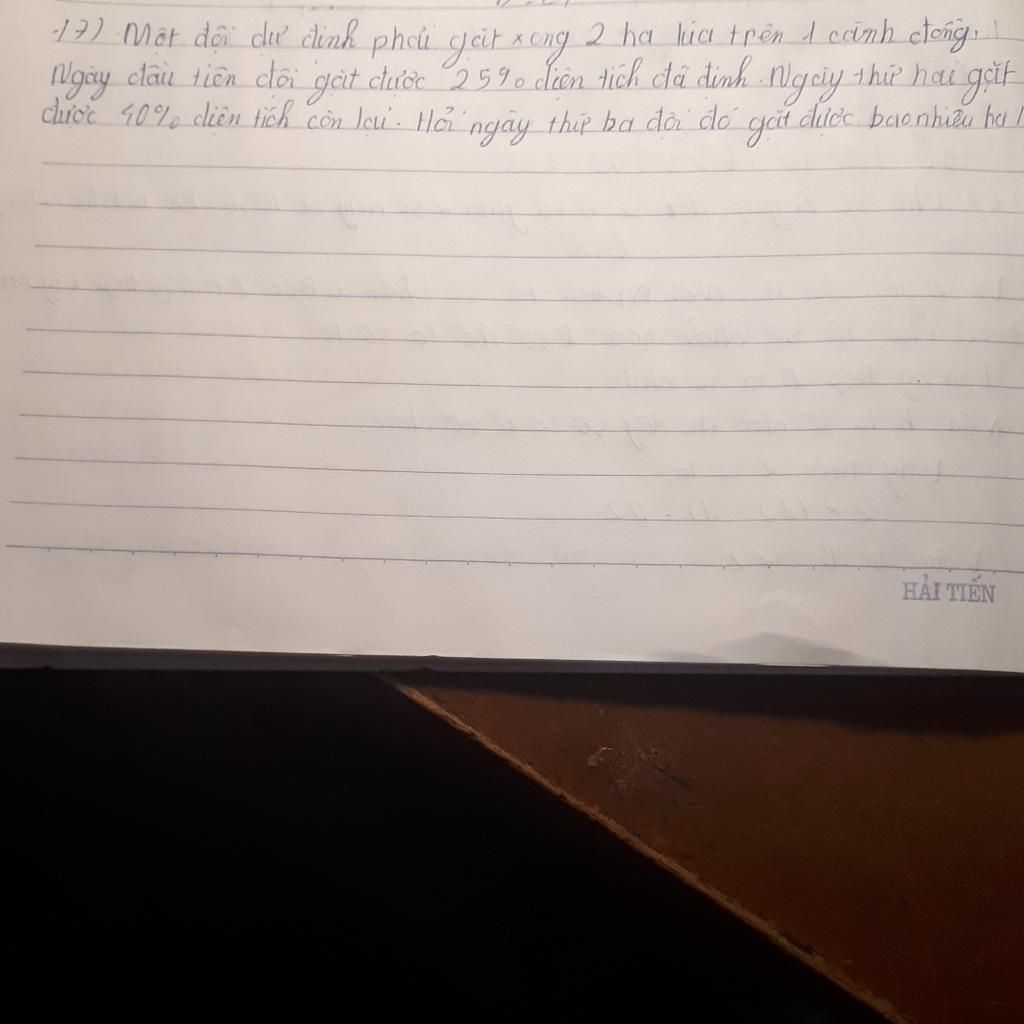 17) Một đội dự định phải gặt xong 2 ha lúa trên 1 cánh đồng.
Ngày đầu tiên đội gặt được 25% diện tích đã định. Ngày thứ hai gặt
được 40% diện tích còn lại. Hỏi ngày thứ ba đội đó gặt được bao nhiêu ha l
HẢI TIẾN